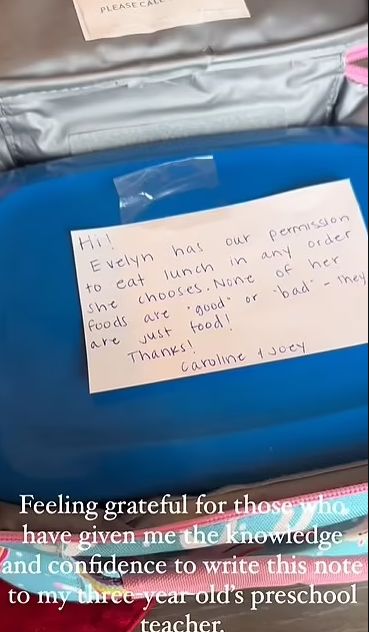 PLEASE CALL
Hi!
Evelyn has our permission
to eat lunch in any order
she chooses. None of her
foods are "good" or "bad" - they
are just food!
Thanks!
Caroline + Joey
Feeling grateful for those who
have given me the knowledge
and confidence to write this note
to my three-year-old's preschool
teacher.